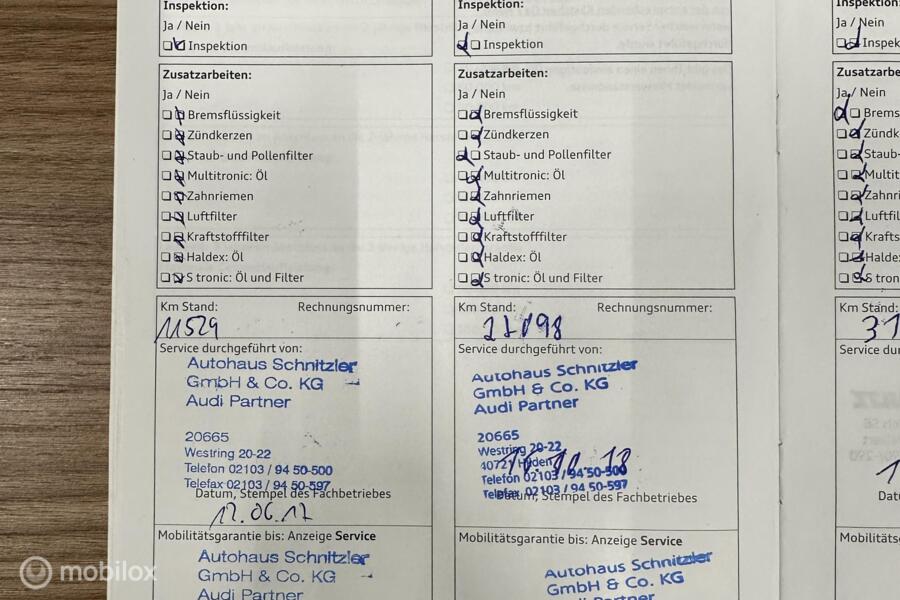 Inspektion:
Ja / Nein
Inspektion
Zusatzarbeiten:
Ja / Nein
Bremsflüssigkeit
Zündkerzen
Staub- und Pollenfilter
Multitronic: Öl
Zahnriemen
Luftfilter
Kraftstofffilter
Haldex: Öl
S tronic: Öl und Filter
Km Stand: Rechnungsnummer:
11529
Service durchgeführt von:
Autohaus Schnitzler
GmbH & Co. KG
Audi Partner
20665
Westring 20-22
Telefon 02103 / 94 50-500
Telefax 02103 / 94 50-597
Datum, Stempel des Fachbetriebes
12.06.17
Mobilitätsgarantie bis: Anzeige Service
Autohaus Schnitzler
GmbH & Co. KG
Audi Partner
Inspektion:
Ja / Nein
Inspektion
Zusatzarbeiten:
Ja / Nein
Bremsflüssigkeit
Zündkerzen
Staub- und Pollenfilter
Multitronic: Öl
Zahnriemen
Luftfilter
Kraftstofffilter
Haldex: Öl
S tronic: Öl und Filter
Km Stand: Rechnungsnummer:
Service durchgeführt von:
Autohaus Schnitzler
GmbH & Co. KG
Audi Partner
20665
Westring 20-22
40721 Hilden
Telefon 02103 / 94 50-500
Telefax 02103 / 94 50-597
Datum, Stempel des Fachbetriebes
Mobilitätsgarantie bis: Anzeige Service
Autohaus Schnitzler
GmbH & Co. KG
Audi Partner
Inspektion:
Ja / Nein
Inspek
Zusatzarbe
Ja / Nein
Brems
Zündk
Staub-
Multit
Zahnri
Luftfil
Krafts
Halde
S tron
Km Stand:
31
Service dur
Dat
Mobilitäts
mobilox